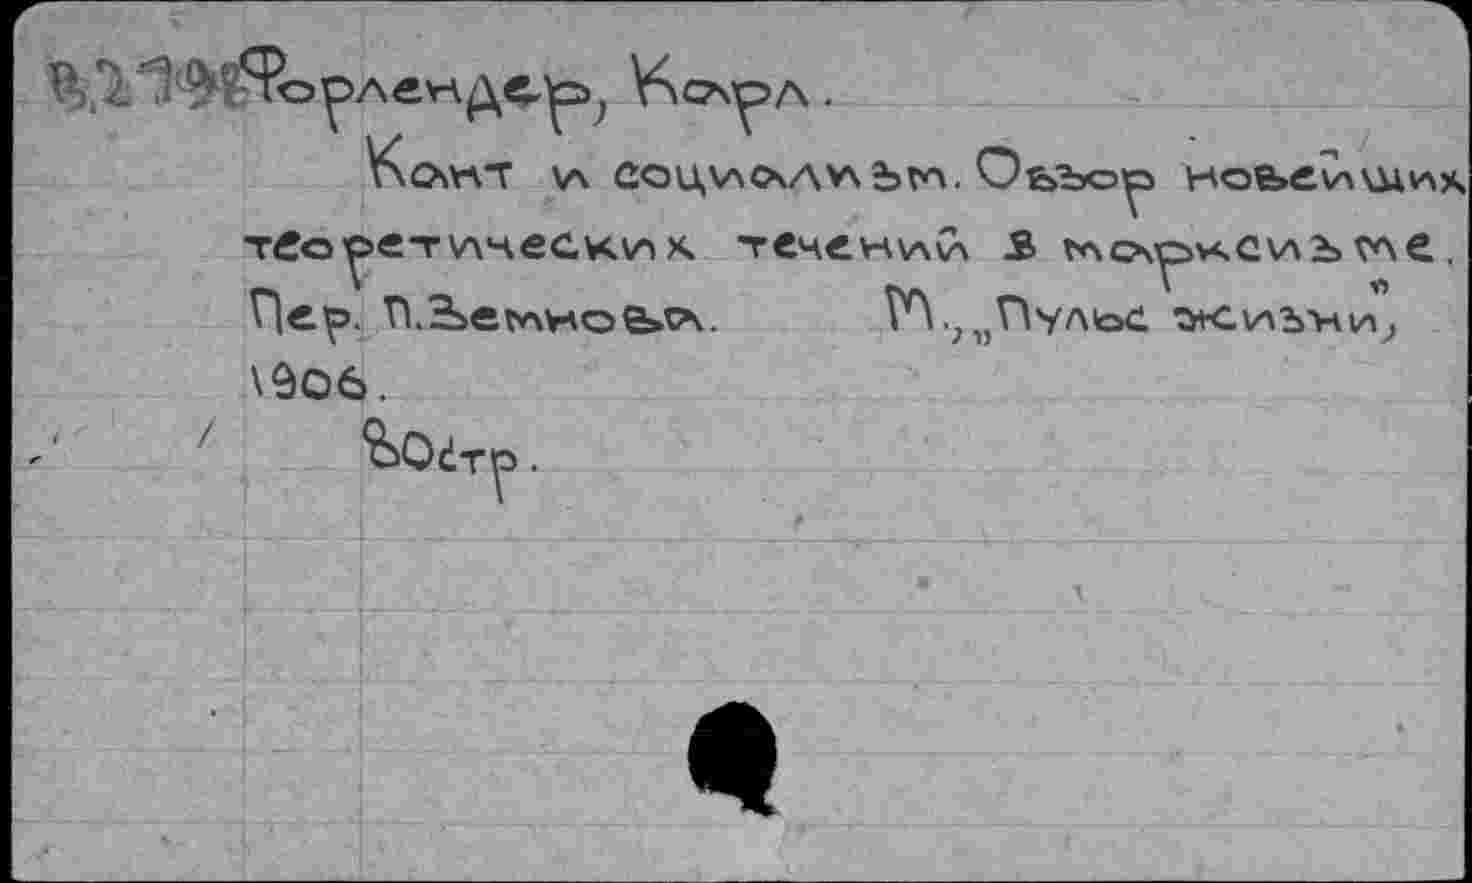 В.2798 Форлендер, Карл.
Кант и социализм. Обзор новейших
теоретических течений в марксизме.
Пер. П. Земнова. М., „Пульс жизни",
1906.
80 стр.